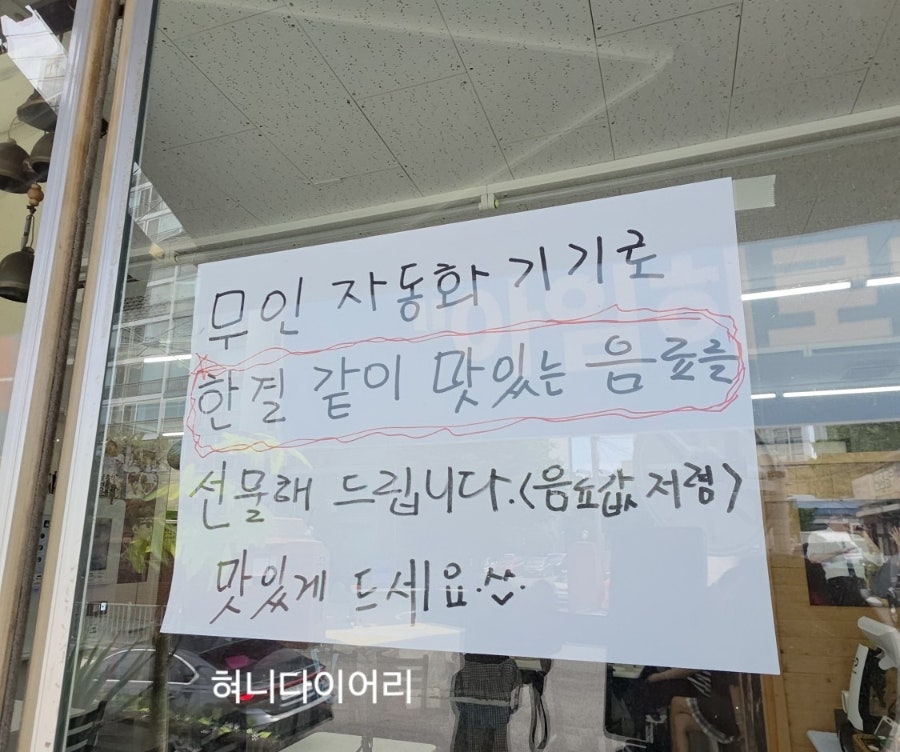 무인 자동화 기기로
한결 같이 맛있는 음료를
선물해 드립니다.<음료값 저렴>
맛있게 드세요.^^.
혀니다이어리